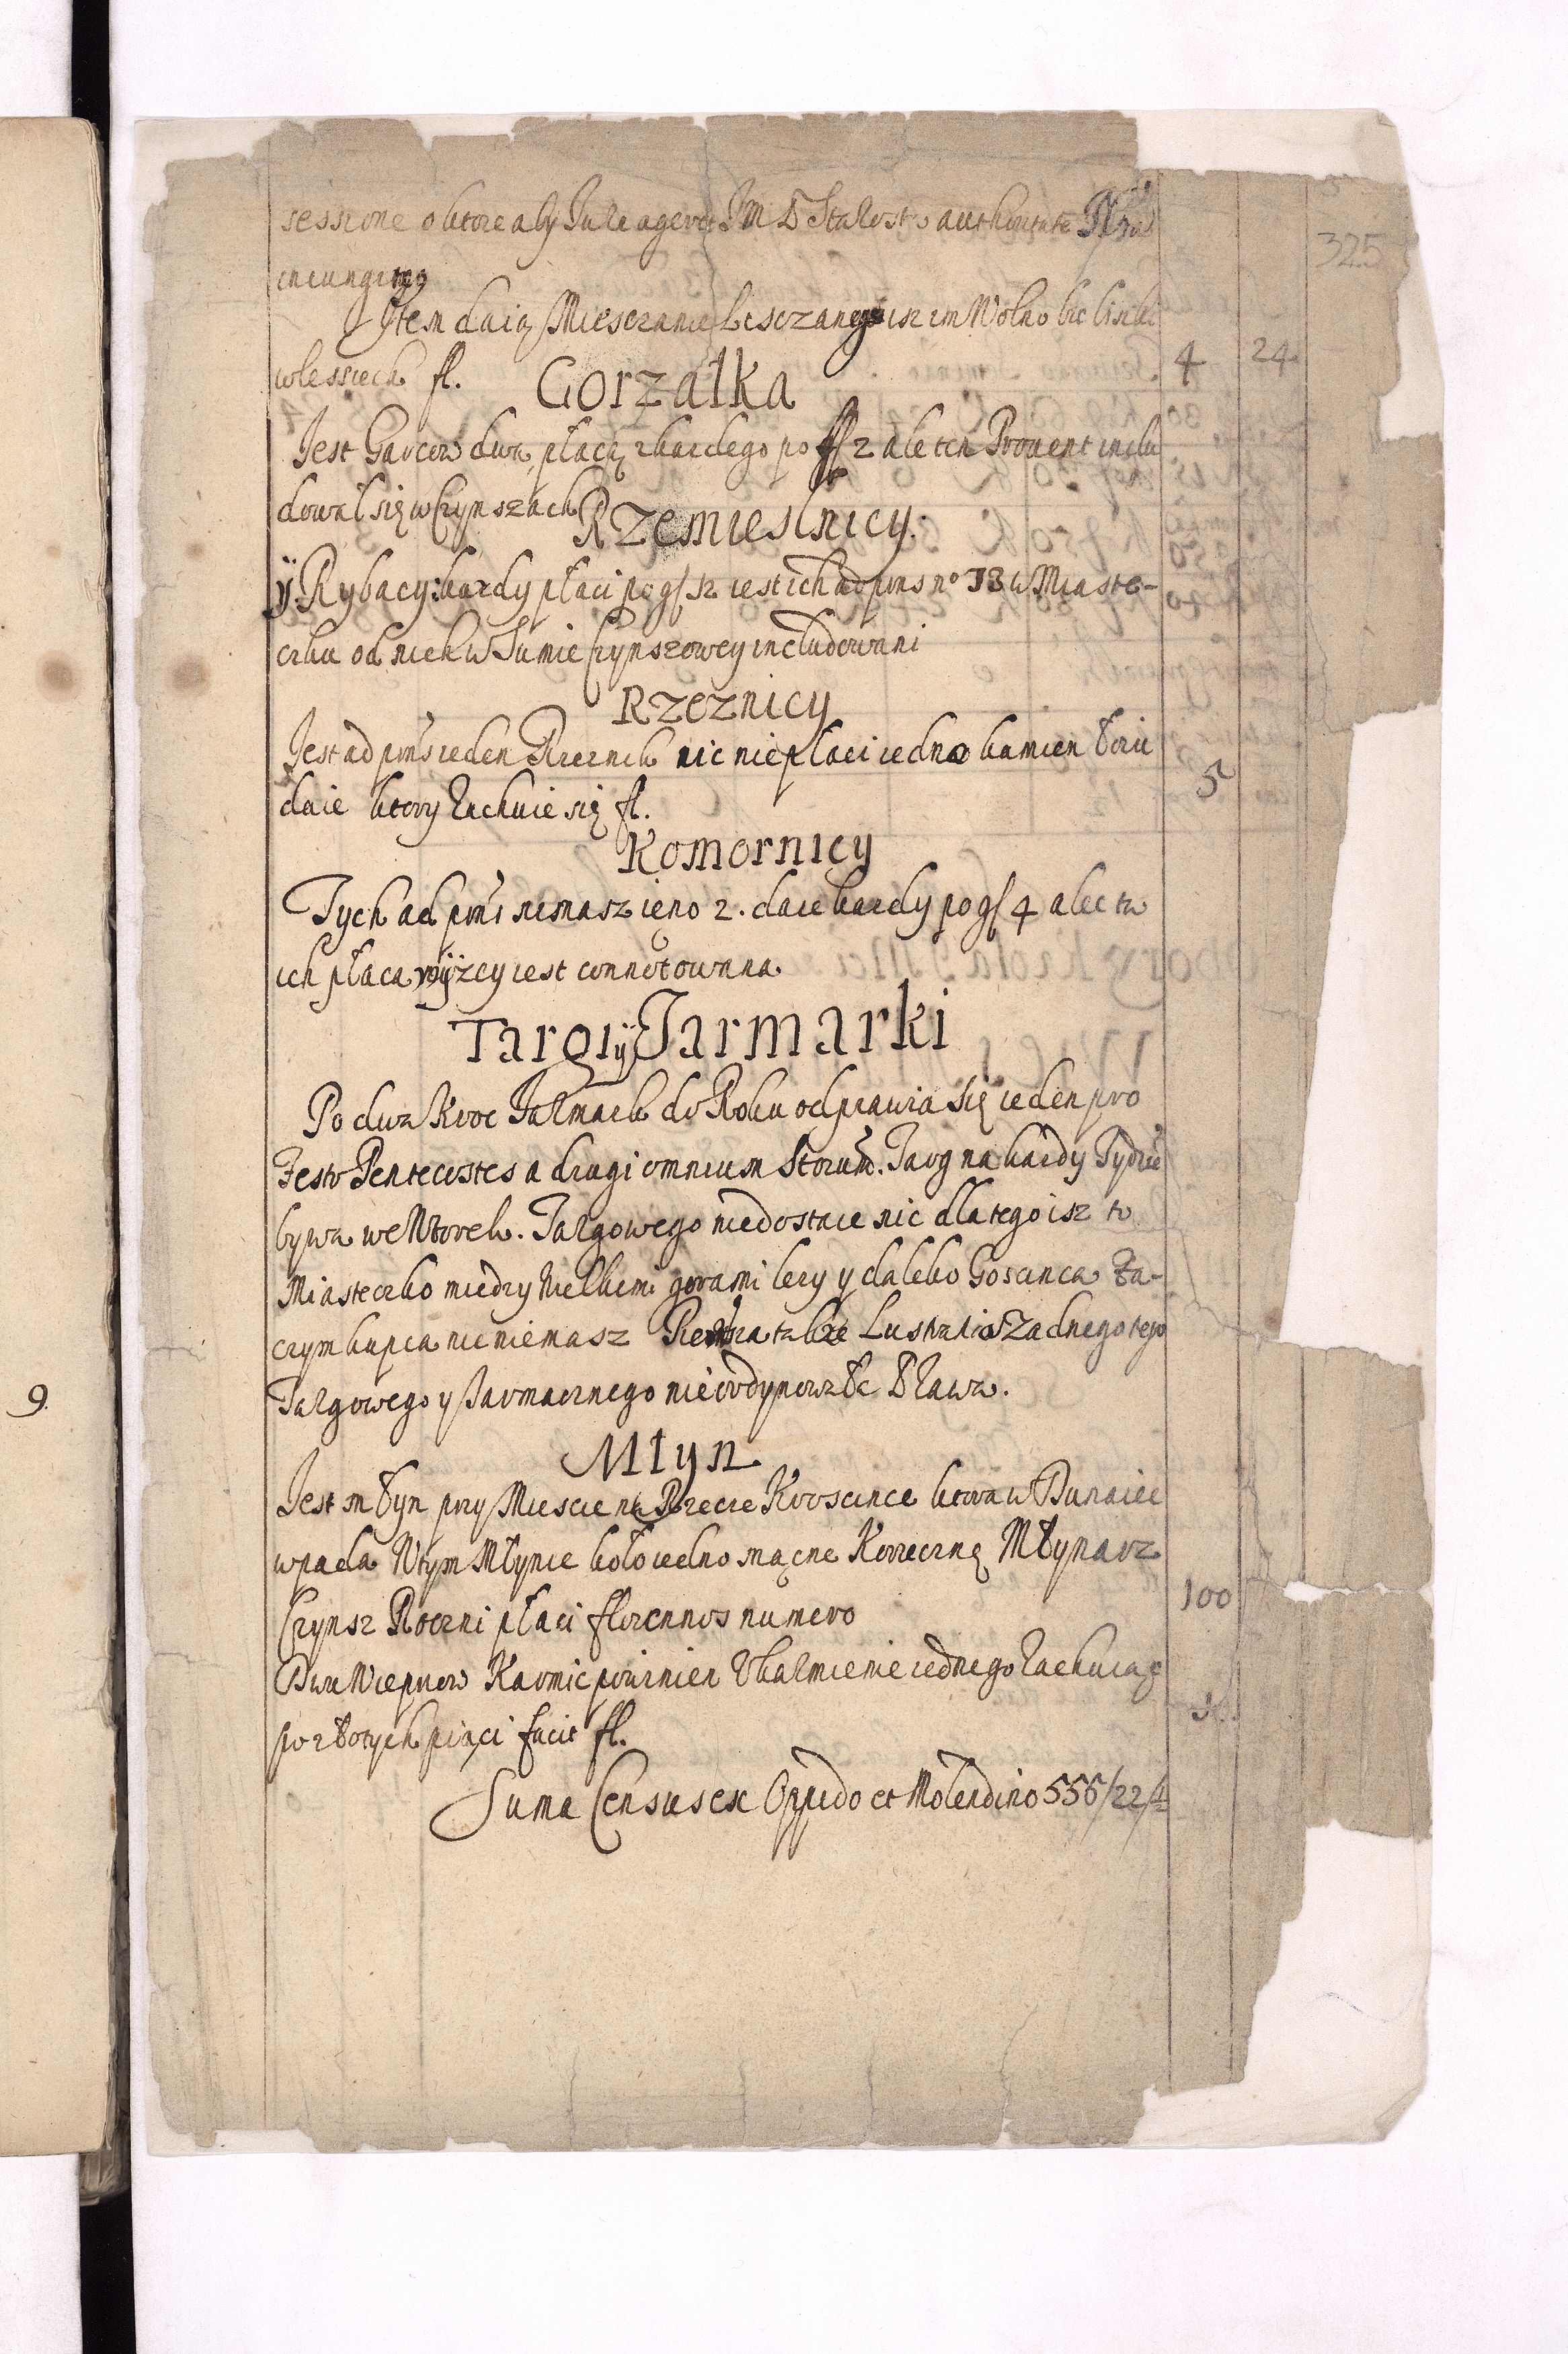 325
sessione o ktore aby Jure ageret Jm D Starosta authoritate
iniungimus
Item daią Miesczanie Lesczanego isz im Wolno bić liszki
wlessiech fl. 4 24
Gorzałka
Jest Garcow dwa, płacą zkazdego po fl 2 ale ten Provent inclu
dował się w Czynszach
Rzemiesłnicy.
ÿ Rybacy: kazdy płaci po g/ 12 iest ich ad pms no 13 w Miaste-
czku od nich w Sumie Czynszowey includowani
Rzeznicy
Jest ad pms ieden Rzeznik nic nie płaci iedno kamien łoiu
daie ktory rachuie się fl. 5
Komornicy
Tych ad pms niemasz ięno 2. daie kazdy po g/ 4 ale ta
ich płaca wÿzey iest connotowana
Targi ÿ Jarmarki
Po dwa kroc Jarmark do Roku odprawia się ieden pro
Festo Pentecostes a drugi omnium Storum. Targ na kazdy Tydzień
bywa we Wtorek. Targowego niedostaie nic dla tego isz to
Miasteczko miedzy wielkiemi gorami lezy y daleko Goscinca Za-
czym kupca nie niemasz Pierwsza takze Lustratia Zadnego tego
Targowego y Jarmacznego nieordynowała Prawa.
Młyn
Jest młyn przy Miescie na Rzecze Kroscince ktora w Dunaiec
wpada Wtym Młynie koło iedno mączne Korzeczne Młynarz
Czynsz Roczni płaci florennos numero 100
Dwu Wieprzow Karmic powinien Ukarmienie iednego rachuiąc
po złotych piąci facit fl.
Suma Census ex Oppido et Molendino 556/22/4
9